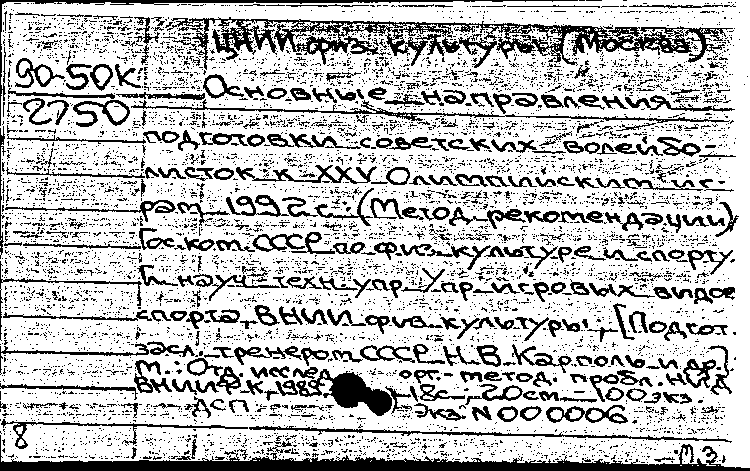 ЦНИИ физ. культуры (Москва)
90-50К
2750
Основные направления
подготовки советских волейбо-
листок к XXV Олимпийским иг-
рам 1992 г.: (Метод. рекомендации)
Гос. ком. СССР по физ. культуре и спорту.
Гл. науч.-техн. упр. Упр. игровых видов
спорта, ВНИИ физ. культуры; [Подгот.
засл. тренером СССР Н.В. Карполь и др.]
М.: Отд. исслед. орг.-метод. пробл. НИД
ВНИИФК, 1989. 18с., 20см. - 100 экз.
ДСП. Экз. N 000006.
8
М.З.